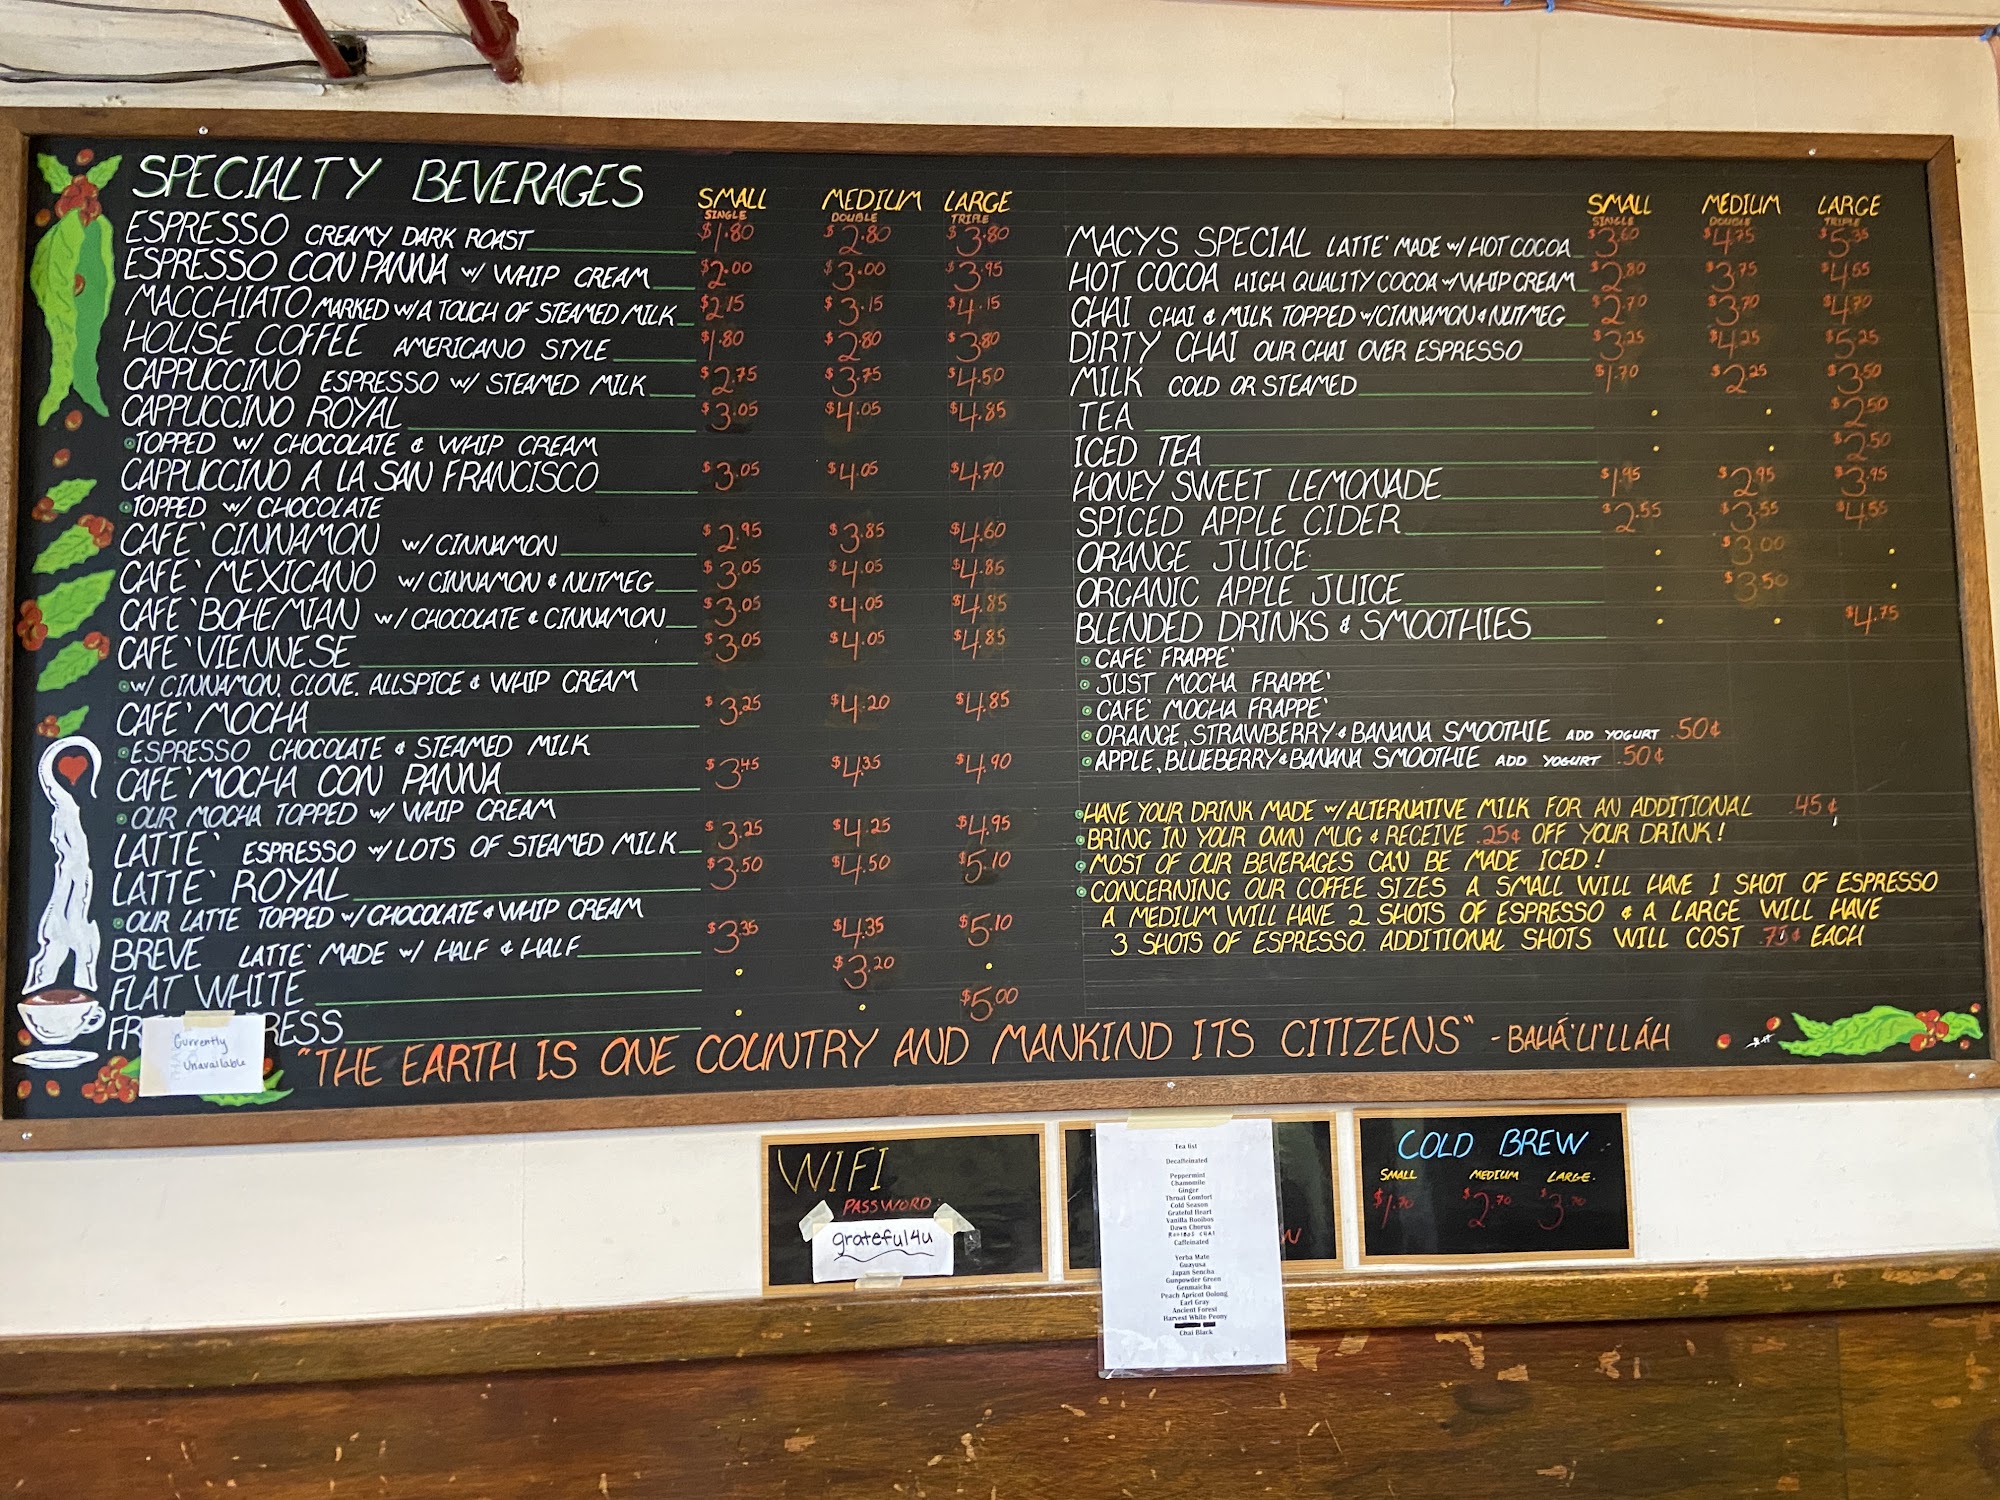 SPECIALTY BEVERAGES
SMALL MEDIUM LARGE
SINGLE DOUBLE TRIPLE
ESPRESSO CREAMY DARK ROAST $1.80 $2.80 $3.80
ESPRESSO CON PANNA w/ WHIP CREAM $2.00 $3.00 $3.95
MACCHIATO MARKED w/ A TOUCH OF STEAMED MILK $2.15 $3.15 $4.15
HOUSE COFFEE AMERICANO STYLE $1.80 $2.80 $3.80
CAPPUCCINO ESPRESSO w/ STEAMED MILK $2.75 $3.75 $4.50
CAPPUCCINO ROYAL $3.05 $4.05 $4.85
TOPPED w/ CHOCOLATE & WHIP CREAM
CAPPUCCINO A LA SAN FRANCISCO $3.05 $4.05 $4.70
TOPPED w/ CHOCOLATE
CAFE` CINNAMON w/ CINNAMON $2.95 $3.85 $4.60
CAFE` MEXICANO w/ CINNAMON & NUTMEG $3.05 $4.05 $4.85
CAFE` BOHEMIAN w/ CHOCOLATE & CINNAMON $3.05 $4.05 $4.85
CAFE` VIENNESE $3.05 $4.05 $4.85
w/ CINNAMON, CLOVE, ALLSPICE & WHIP CREAM
CAFE` MOCHA $3.25 $4.20 $4.85
ESPRESSO CHOCOLATE & STEAMED MILK
CAFE` MOCHA CON PANNA $3.45 $4.35 $4.90
OUR MOCHA TOPPED w/ WHIP CREAM
LATTE` ESPRESSO w/ LOTS OF STEAMED MILK $3.25 $4.25 $4.95
LATTE` ROYAL $3.50 $4.50 $5.10
OUR LATTE TOPPED w/ CHOCOLATE & WHIP CREAM
BREVE LATTE` MADE w/ HALF & HALF $3.35 $4.35 $5.10
FLAT WHITE $3.20
FR RESS $5.00
Currently
Unavailable
SMALL MEDIUM LARGE
SINGLE DOUBLE TRIPLE
MACYS SPECIAL LATTE` MADE w/ HOT COCOA $3.60 $4.75 $5.35
HOT COCOA HIGH QUALITY COCOA w/ WHIP CREAM $2.80 $3.75 $4.55
CHAI CHAI & MILK TOPPED w/ CINNAMON & NUTMEG $2.70 $3.70 $4.70
DIRTY CHAI OUR CHAI OVER ESPRESSO $3.25 $4.25 $5.25
MILK COLD OR STEAMED $1.70 $2.25 $3.50
TEA $2.50
ICED TEA $2.50
HONEY SWEET LEMONADE $1.95 $2.95 $3.95
SPICED APPLE CIDER $2.55 $3.55 $4.55
ORANGE JUICE $3.00
ORGANIC APPLE JUICE $3.50
BLENDED DRINKS & SMOOTHIES $4.75
CAFE` FRAPPE`
JUST MOCHA FRAPPE`
CAFE` MOCHA FRAPPE`
ORANGE, STRAWBERRY & BANANA SMOOTHIE ADD YOGURT .50¢
APPLE, BLUEBERRY & BANANA SMOOTHIE ADD YOGURT .50¢
HAVE YOUR DRINK MADE w/ ALTERNATIVE MILK FOR AN ADDITIONAL .45¢
BRING IN YOUR OWN MUG & RECEIVE .25¢ OFF YOUR DRINK!
MOST OF OUR BEVERAGES CAN BE MADE ICED!
CONCERNING OUR COFFEE SIZES A SMALL WILL HAVE 1 SHOT OF ESPRESSO
A MEDIUM WILL HAVE 2 SHOTS OF ESPRESSO & A LARGE WILL HAVE
3 SHOTS OF ESPRESSO. ADDITIONAL SHOTS WILL COST .75¢ EACH
"THE EARTH IS ONE COUNTRY AND MANKIND ITS CITIZENS" - BAHÁ'U'LLÁH
WIFI
PASSWORD:
grateful4u
Tea list
Decaffeinated
Peppermint
Chamomile
Ginger
Throat Comfort
Cold Season
Grateful Heart
Vanilla Rooibos
Dawn Chorus
ROOIBOS CHAI
Caffeinated
Yerba Mate
Guayusa
Japan Sencha
Gunpowder Green
Genmaicha
Peach Apricot Oolong
Earl Gray
Ancient Forest
Harvest White Peony
Chai Black
W
COLD BREW
SMALL MEDIUM LARGE
$1.70 $2.70 $3.70